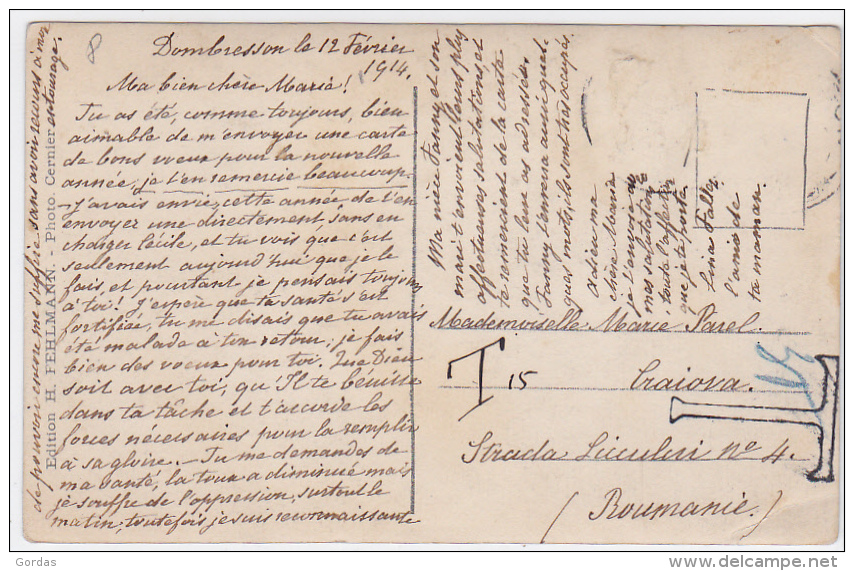 Dombresson le 12 Février
1914.
Ma bien chère Marie!
Tu as été, comme toujours, bien
aimable de m'envoyer une carte
de bons voeux pour la nouvelle
année, je t'en remercie beaucoup.
J'avais envie, cette année de t'en
envoyer une directement sans en
charger Cécile, et tu vois que c'est
seulement aujourd'hui que je le
fais, et pourtant je pensais toujours
à toi! J'espère que ta santé s'est
fortifiée, tu me disais que tu avais
été malade à ton retour; je fais
bien des voeux pour toi. Que Dieu
soit avec toi, qu'Il te bénisse
dans ta tâche et t'accorde les
forces nécessaires pour la remplir
à sa gloire. - Tu me demandes de
ma santé, la toux a diminué mais
je souffre de l'oppression, surtout le
matin, toutefois je suis reconnaissante
de pouvoir encore me suffire sans avoir recours à mon
entourage.
Ma nièce Fanny et son
mari t'envoient leurs plus
affectueuses salutations et
te remercient de la carte
que tu leur as adressée.
Fanny t'enverra aussi quel-
ques mots, ils sont très occupés.
Adieu ma
chère Marie
je t'envoie
mes salutations
toute l'affection
que je te porte
Lina Fallet
l'amie de
ta maman.
Mademoiselle Marie Parel.
Craiova.
Strada Liculeri no 4.
(Roumanie.)
T 15
T
8
Edition H. FEHLMANN. - Photo. Cernier
Gordas
delcampe.net